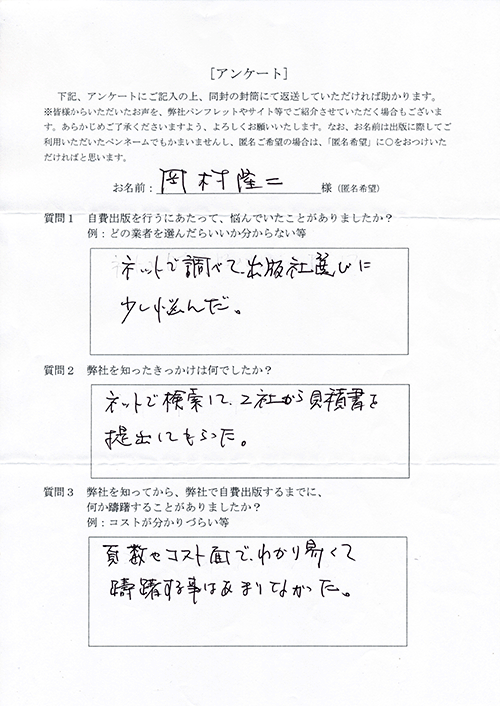 [アンケート]
下記、アンケートにご記入の上、同封の封筒にて返送していただければ助かります。
※皆様からいただいたお声を、弊社パンフレットやサイト等でご紹介させていただく場合もございま
す。あらかじめご了承くださいますよう、よろしくお願いいたします。なお、お名前は出版に際してご
利用いただいたペンネームでもかまいませんし、匿名ご希望の場合は、「匿名希望」に○をおつけいた
だければと思います。
お名前：岡村隆二 様（匿名希望）
質問１ 自費出版を行うにあたって、悩んでいたことがありましたか？
例：どの業者を選んだらいいか分からない等
ネットで調べて、出版社選びに
少し悩んだ。
質問２ 弊社を知ったきっかけは何でしたか？
ネットで検索して、2社から見積書を
提出してもらった。
質問３ 弊社を知ってから、弊社で自費出版するまでに、
何か躊躇することがありましたか？
例：コストが分かりづらい等
頁数やコスト面で、わかり易くて
躊躇する事はあまりなかった。